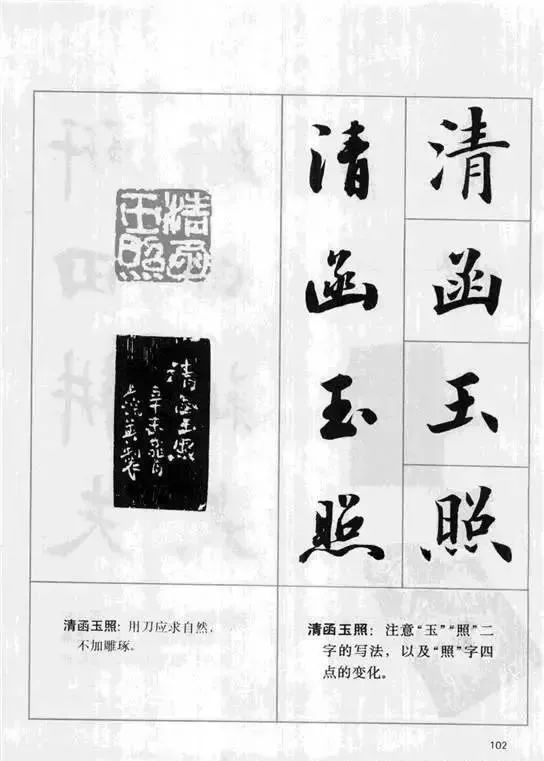 清函玉照
清函玉照
清函玉照
清函玉照
辛未
製
清函玉照：用刀应求自然，
不加雕琢。
清函玉照：注意“玉”“照”二
字的写法，以及“照”字四
点的变化。
102